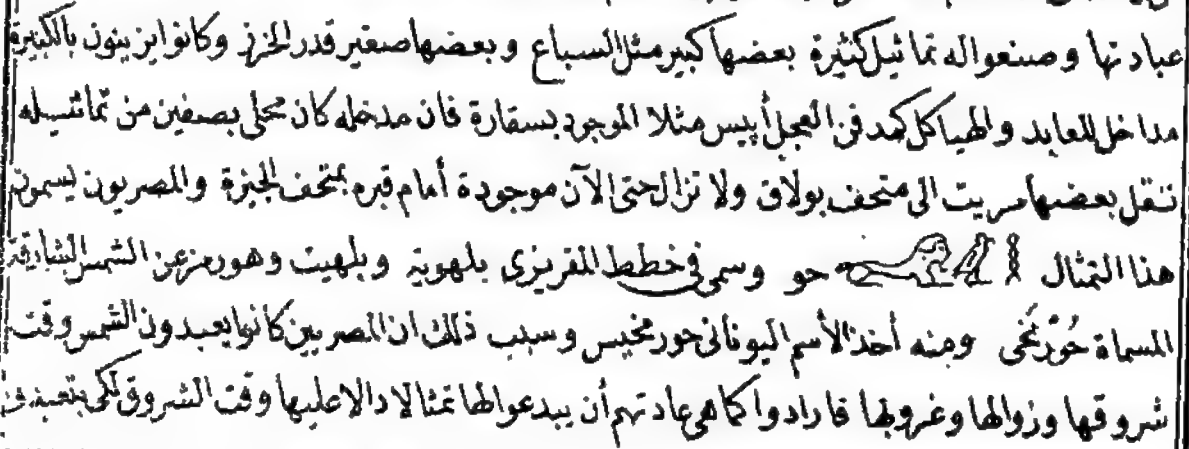 عبادتها وصنعوا له تماثيل كثيرة بعضها كبير مثل السباع وبعضها صغير قدر الخرز وكانوا يزينون بالكبيرة
مداخل المعابد والهياكل كمدفن العجل أبيس مثلا الموجود بسقارة فان مدخله كان محلى بصفين من تماثيله
نقل بعضها مريت الى متحف بولاق ولا تزال حتى الآن موجودة أمام قبره بمتحف الجيزة والمصريون يسمون
هذا التمثال حو وسمى في خطط المقريزى بلهوية وبلهيت وهو رمز عن الشمس الشارقة
المسماة حُورَنَخى ومنه أخذ الأسم اليونانى حورمخيس وسبب ذلك ان المصريين كانوا يعبدون الشمس وقت
شروقها وزوالها وغروبها فارادوا كما هى عادتهم أن يبدعوا لها تمثالا دالا عليها وقت الشروق لكى